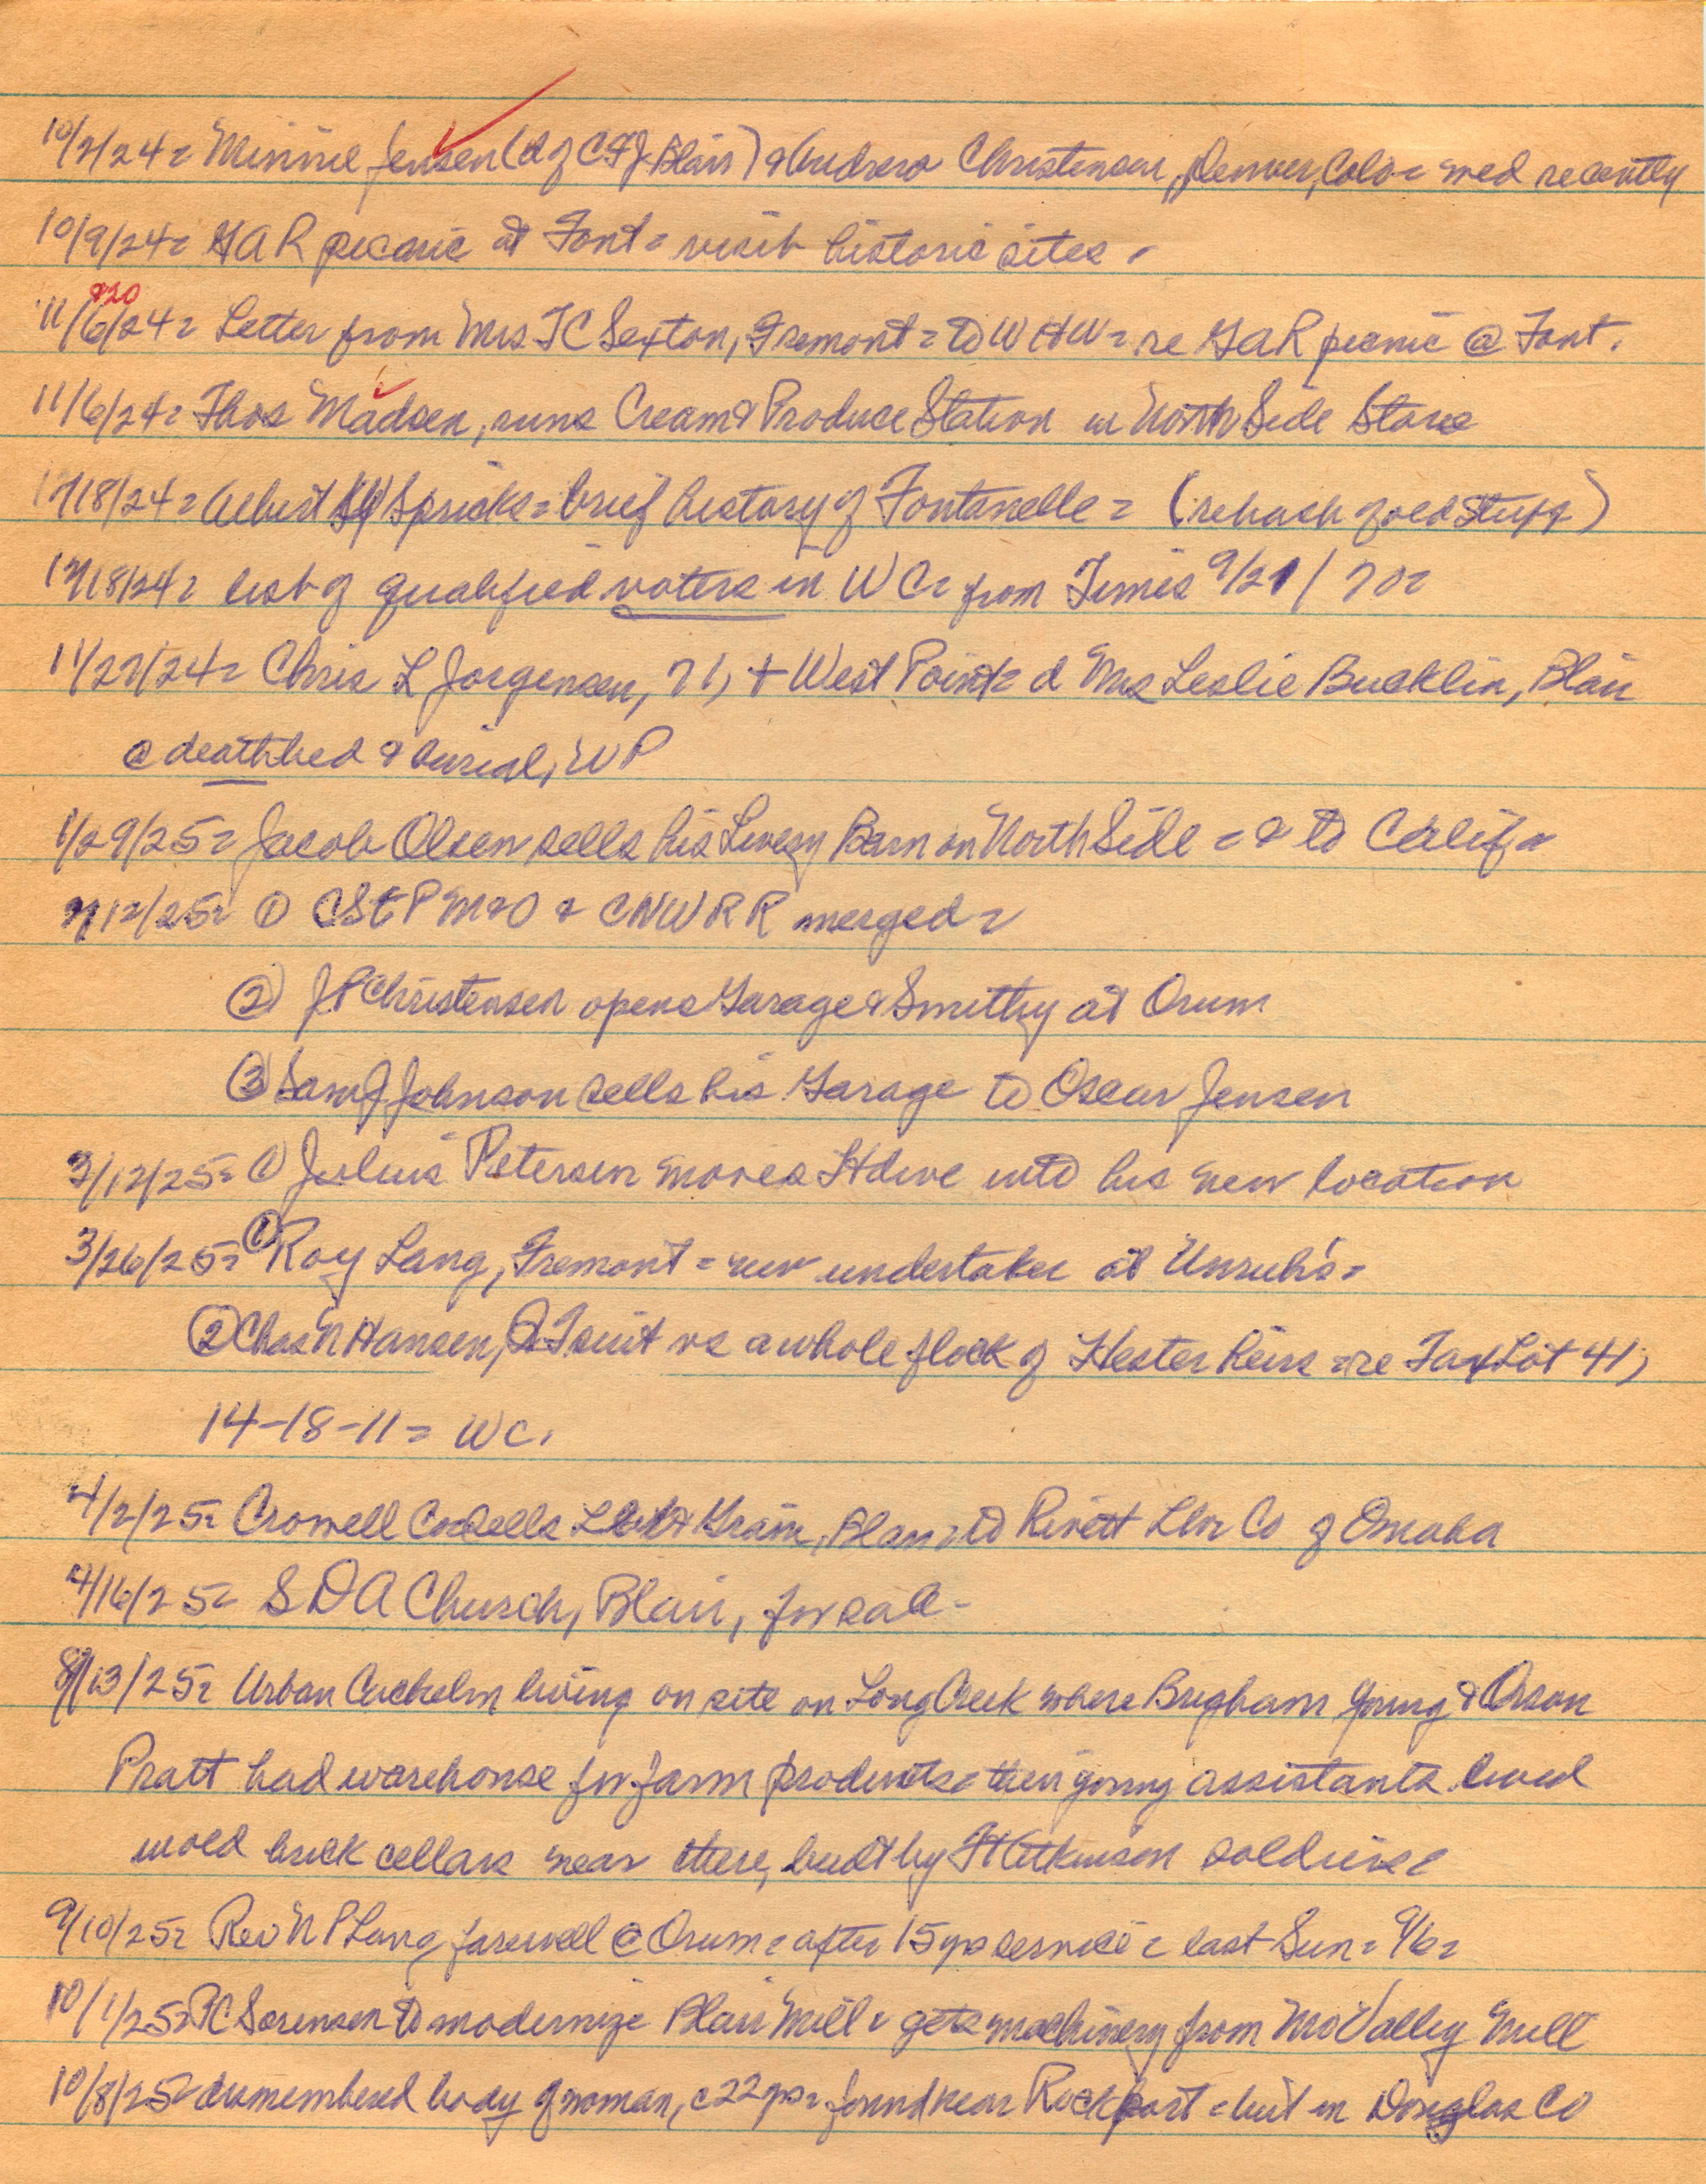 10/2/24= Minnie Jensen (d of CFJ Blair) & Andrew Christensen, Denver, Colo = med recently
10/9/24= GAR picnic at Font = visit historic sites -
&20
11/6/24= Letter from Mrs JC Sexton, Fremont = to WHW = re GAR picnic @ Font.
11/6/24= Thos Madsen, runs Cream & Produce Station in North Side Store
/18/24= Albert Spricks = brief history of Fontanelle = (rehash of old stuff)
/18/24= list of qualified voters in WC= from Times 9/21/70=
11/27/24= Chris L Jorgensen, 71, + West Point= d Mrs Leslie Bucklin, Blair
@ deathbed & burial, WP
1/29/25= Jacob Olsen sells his Livery Barn on North Side = & to Calif =
/12/25= ① CStPM&O & CNW RR merged =
② JP Christensen opens Garage & Smithy at Orum
③ Sam J Johnson sells his Garage to Oscar Jensen
3/12/25= ① Julius Petersen moves Hdwe into his new location
3/26/25= ① Roy Lang, Fremont = new undertaker at Unruh's =
② Chas N Hansen, QT suit vs a whole flock of Hester heirs = re Tax Lot 41,
14-18-11= WC.
4/2/25= Crowell Co sells Grain, Blair = to Rivett Lbr Co of Omaha
4/16/25= SDA Church, Blair, for sale -
8/13/25= Urban Cachelin living on site on Long Creek where Brigham Young & Orson
Pratt had warehouse for farm products = their young assistants lived
in old brick cellars near there, built by Ft Atkinson soldiers =
9/10/25= Rev N P Lang farewell @ Orum = after 15 yrs service = last Sun = 9/6=
10/1/25= PC Sorensen to modernize Blair Mill = gets machinery from Mo Valley Mill
10/8/25= dismembered body of woman, c 22 yrs = found near Rockport = but in Douglas Co